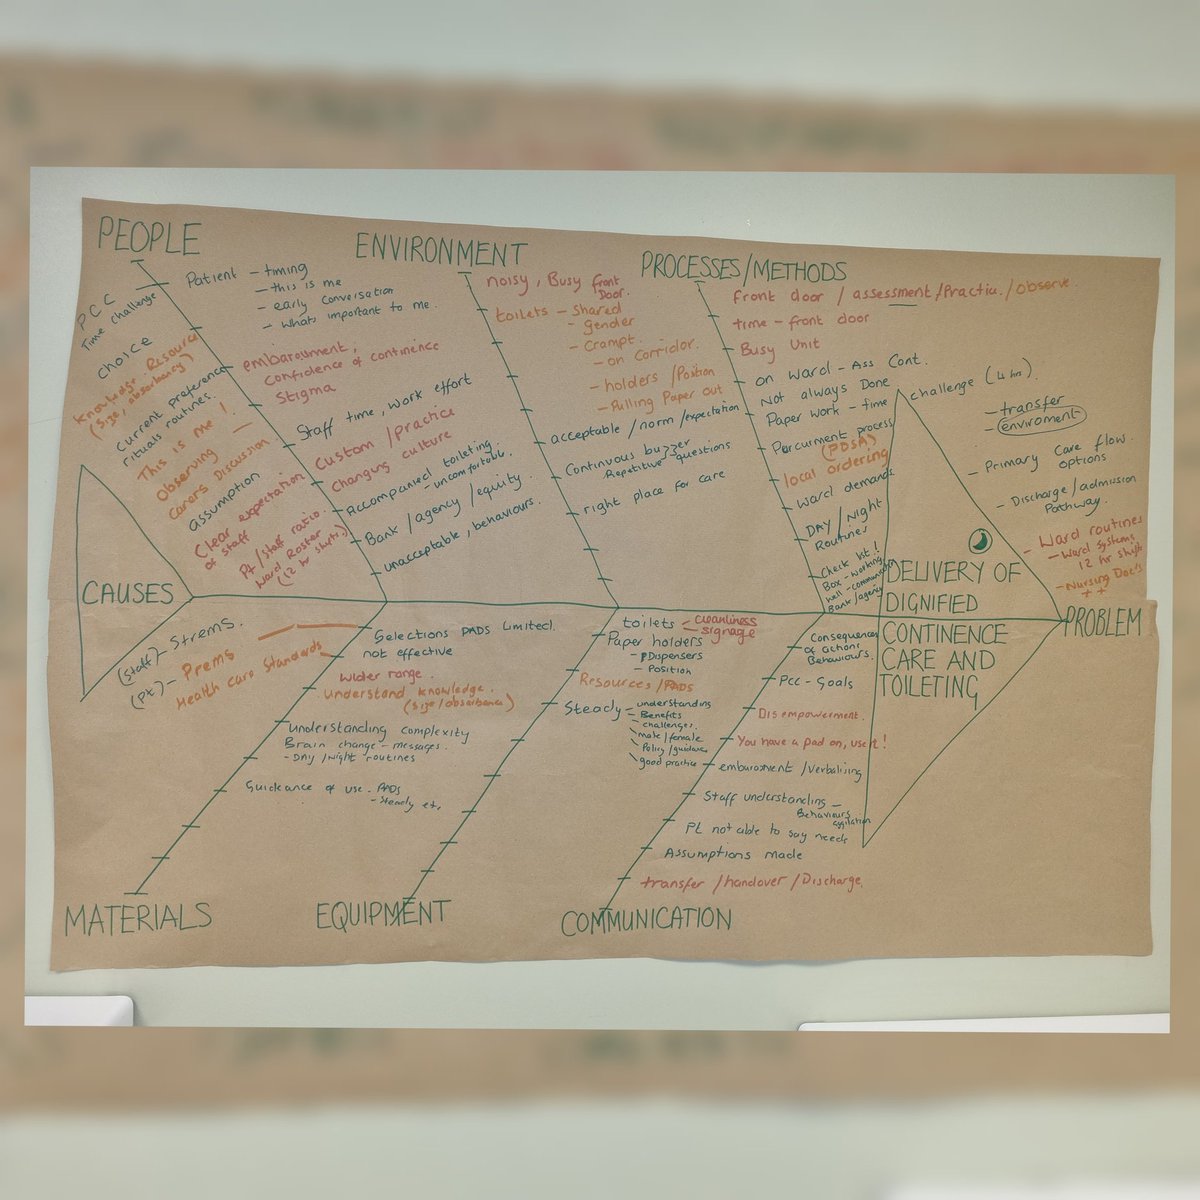 PEOPLE
PCC
Time challenge
choice
knowledge. Resource
(Size, absorbancy)
current preference
rituals routines.
This is me!
Observing
carers Discussion
assumption
Clear expectation
of staff
Pt/staff ratio.
Ward Roster
(12 hr shifts)
Patient - timing
- this is me
- early conversation
- whats important to me.
embarasment,
Confidence of continence
Stigma
Staff time, work effort
Custom/Practice
Changing culture
Accompanied toileting.
- uncomfortable.
Bank/agency/equity.
unacceptable, behaviours.
ENVIRONMENT
noisy, Busy front
Door.
toilets - shared
- gender
- Crampt.
- on Corridor.
- holders/Position
- Pulling Paper out
acceptable/norm/expectation
Continous buzzer
Repetitive questions
right place for care
PROCESSES/METHODS
front door/assessment/Practice/observe.
time - front door
Busy Unit
on Ward - Ass Cont.
Not always Done
Paper work - time
Percurment process
(PDSA)
local ordering
Ward demands
DAY/Night
Routines
Check list!
Box - working
well - communication
Bank/agency
challenge (4 hrs).
- transfer
- enviroment
- Primary Care flow.
options
- Discharge/admission
Pathway.
- Ward routines
- Ward Systems
12 hr shifts
- Nursing Doc's
++
CAUSES
DELIVERY OF
DIGNIFIED
CONTINENCE
CARE AND
TOILETING
PROBLEM
(Staff) - Strems.
(Pt) - Prems
Health care standards
Selections PADS Limited.
not effective
Wider range.
understand knowledge.
(size/absorbence)
understanding complexity
Brain change - messages.
- Day/Night routines
Guideance of use. PADS
- Steady etc.
MATERIALS
toilets - cleanliness
signage
Paper holders
- Dispensers
- Position
Resources/PADS
Steady - understanding
- Benefits
- challenges.
- male/female
Policy/guidance
good practice
EQUIPMENT
Consequences
of actions
Behaviours.
PCC - Goals
Disempowerment.
You have a pad on, use it!
embarasment/Verbalising
Staff understanding -
Behaviours
aggitation
Pt not able to say needs
Assumptions made
transfer/handover/Discharge.
COMMUNICATION